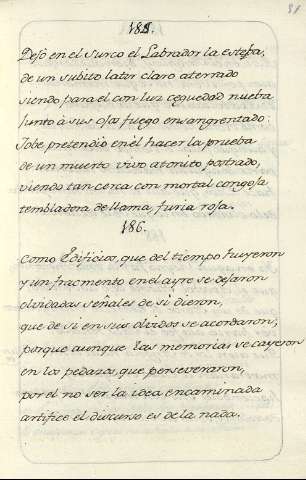 185.
Dejó en el surco el Labrador la esteba,
de un subito latir claro aterrado
siendo para el con luz ceguedad nueba
Junto à sus ojos fuego ensangrentado:
Jobe pretendió en èl hacer la prueba
de un muerto vivo atonito postrado,
viendo tan cerca con mortal congoja
tembladora de llama, furia roja.
186.
Como Edificios, que del tiempo huyeron
y un fracmento en el ayre se dejaron
olvidadas señales de sì dieron,
que de si en sus olvidos se acordaron;
porque aunque las memorias se cayeron
en los pedazos, que perseveraron,
por el no ser la idea encaminada
artifice el discurso es de la nada.